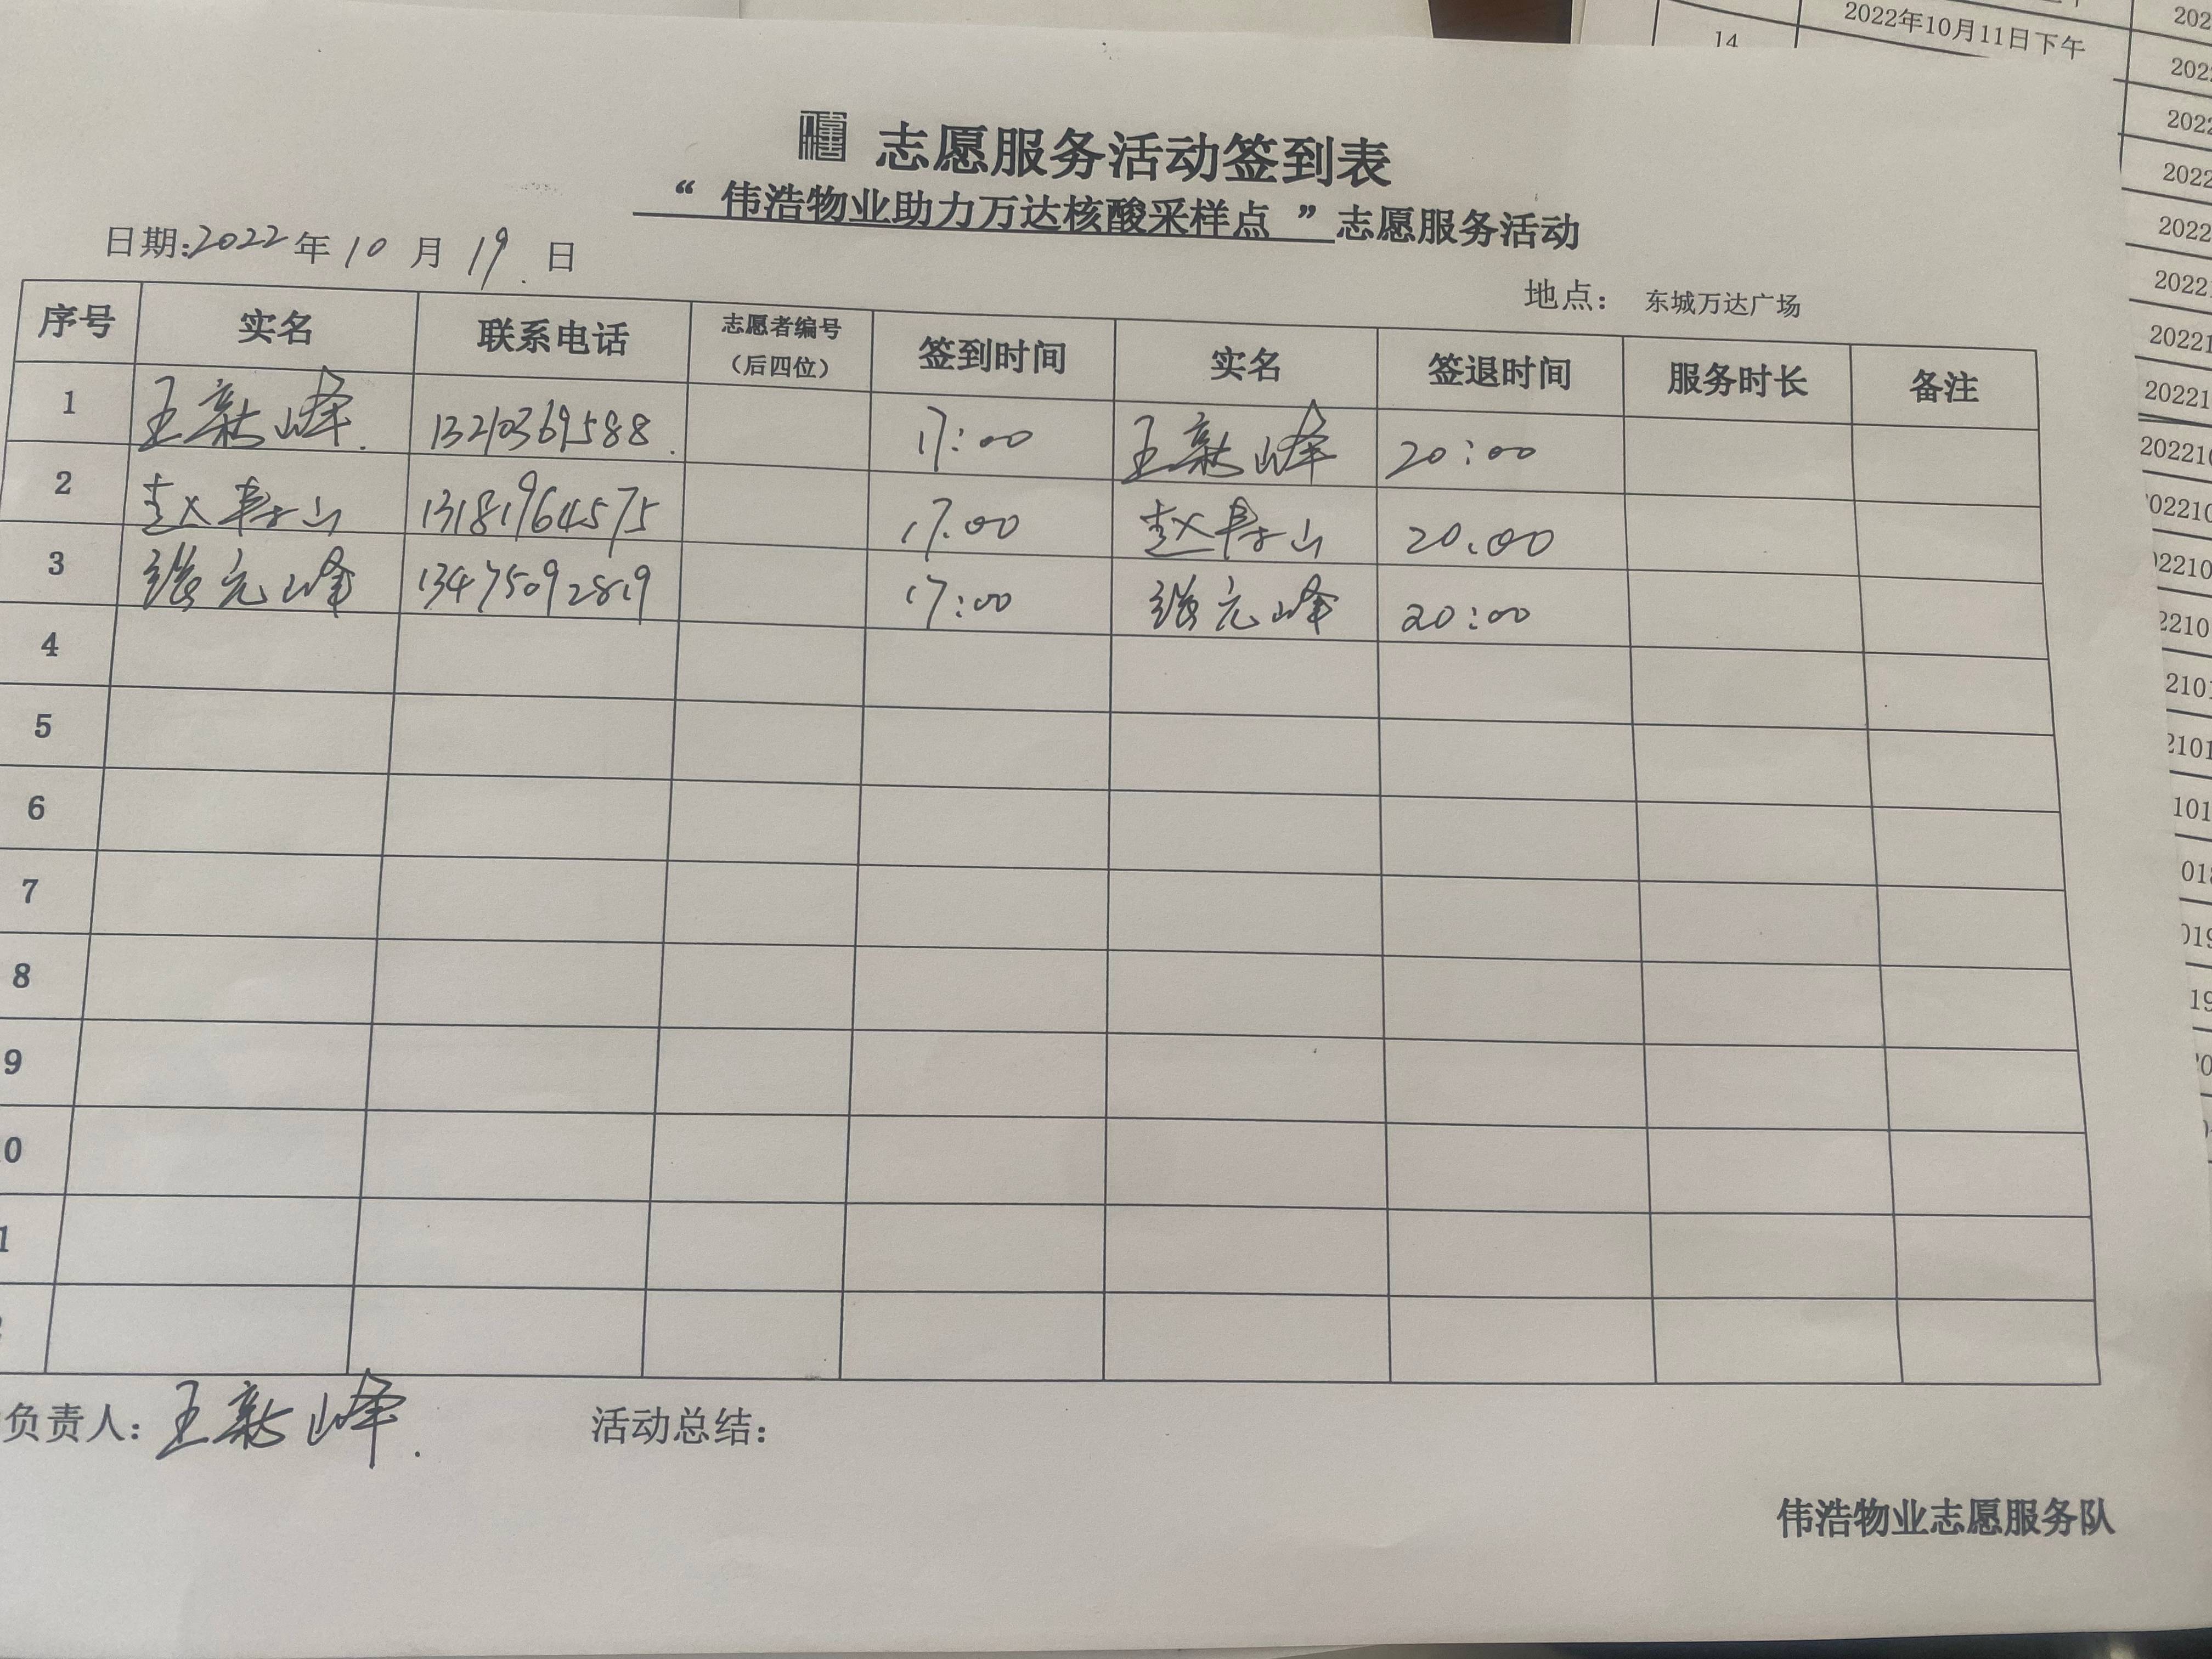 14 2022年10月11日下午
志愿服务活动签到表
“ 伟浩物业助力万达核酸采样点 ”志愿服务活动
日期:2022年10月19日
地点： 东城万达广场
序号 实名 联系电话 志愿者编号（后四位） 签到时间 实名 签退时间 服务时长 备注
1 王新峰 13210369588 17:00 王新峰 20:00
2 赵寿山 13181964575 17.00 赵寿山 20.00
3 张元峰 13475092819 17:00 张元峰 20:00
4
5
6
7
8
9
0
1
负责人：王新峰 活动总结：
伟浩物业志愿服务队